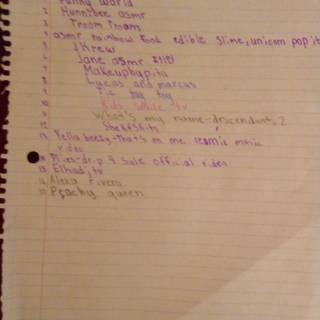 Funny world
2. Hunnibee asmr
3. Troom Troom
4. asmr rainbow food edible slime, unicorn pop it
5. J Krew
6. Jane asmr
7. Makeuphapita
8. Lucas and marcus
9. Tic tac toy
10. Kids tv
11. What's my name-descendants 2
12.
13. Yella beezy-that's on me remix music
video
14. Plies-drip 4 sale official video
15. Elhadj tv
16. Alexa rivera
17. Peachy queen